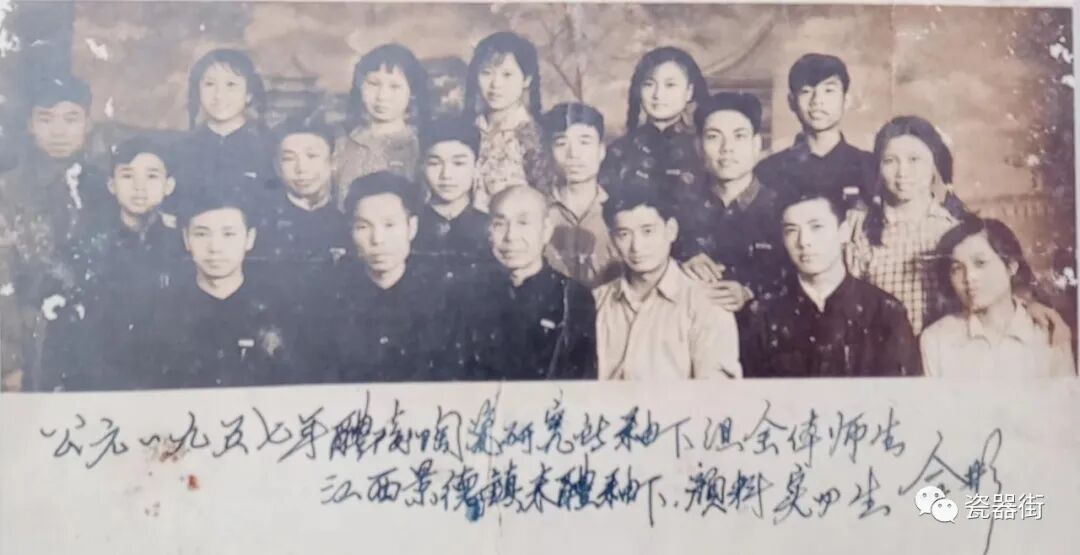 公元一九五七年醴陵陶瓷研究所釉下组全体师生
江西景德镇来醴釉下颜料实习生 合影
瓷器街